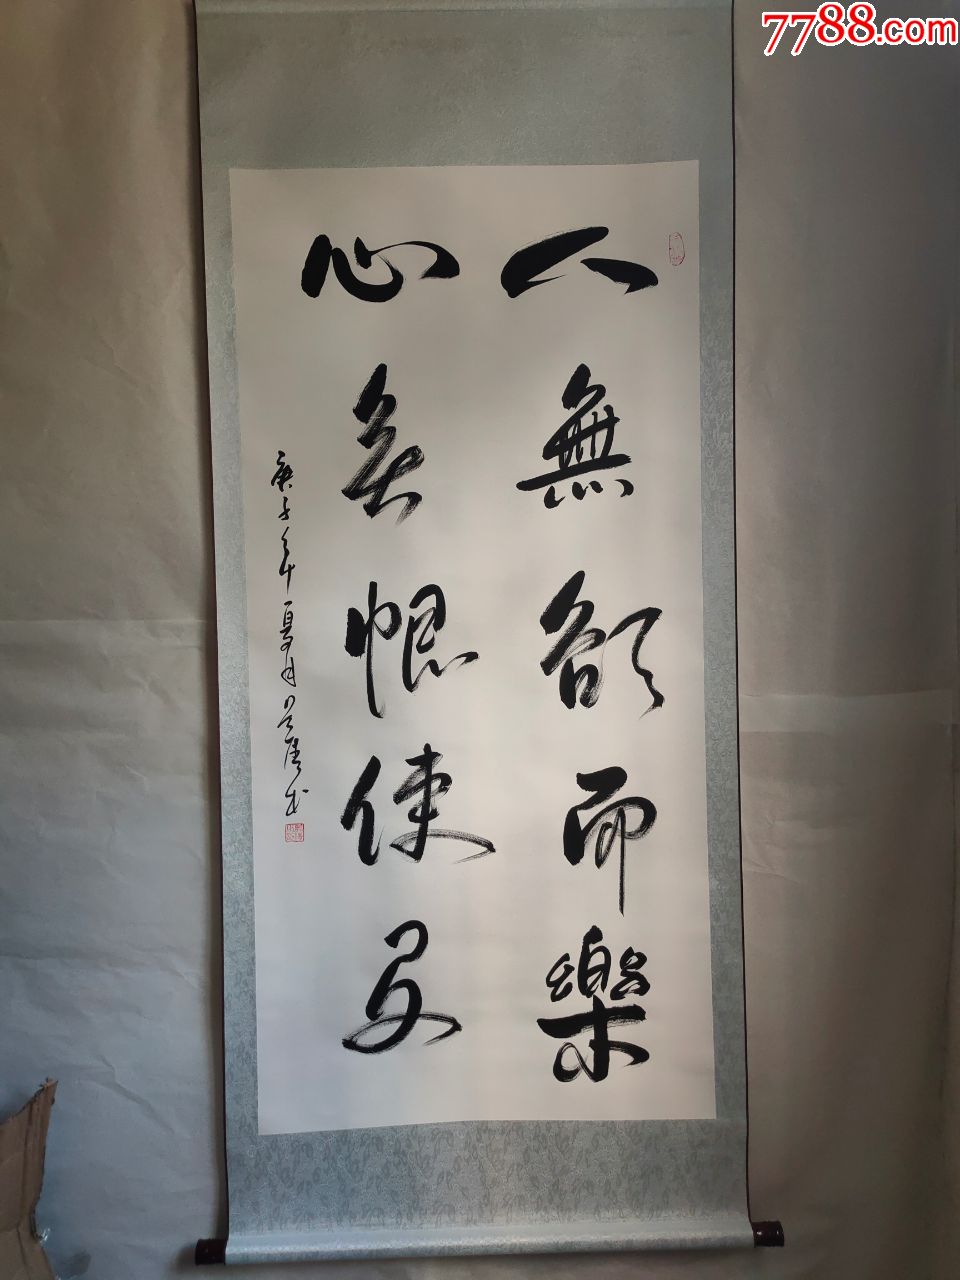 7788.com
人無欲而樂
心無恨使安
庚子年夏月